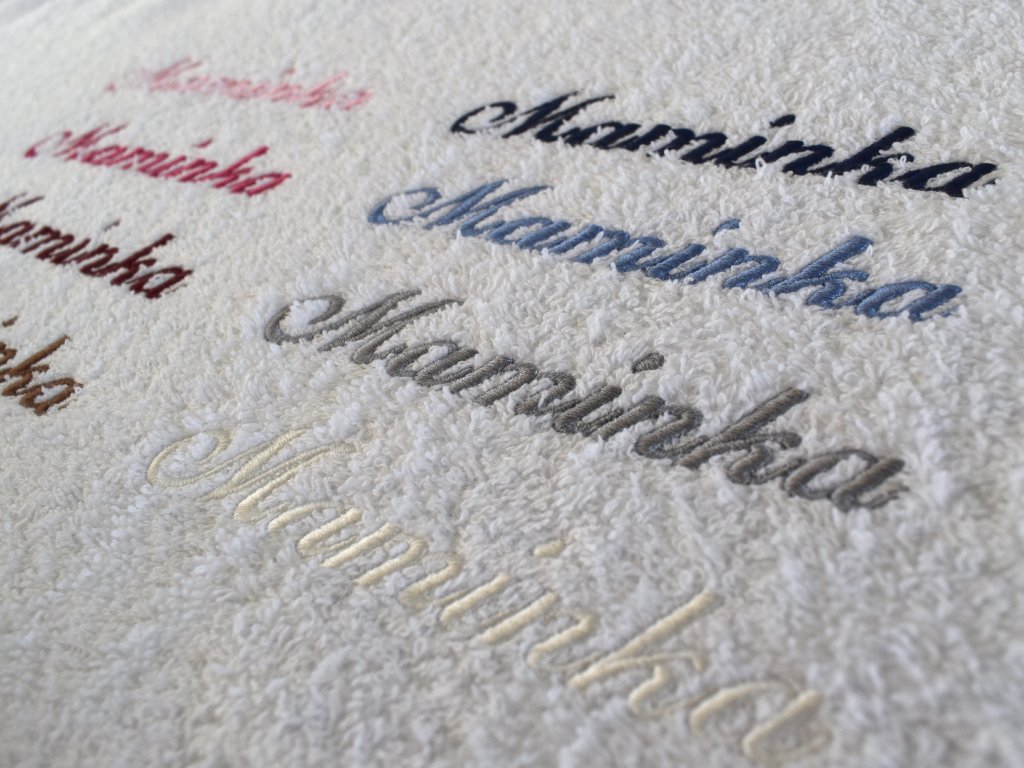 Maminka
Maminka
Maminka
Maminka
Maminka
Maminka
Maminka
inka